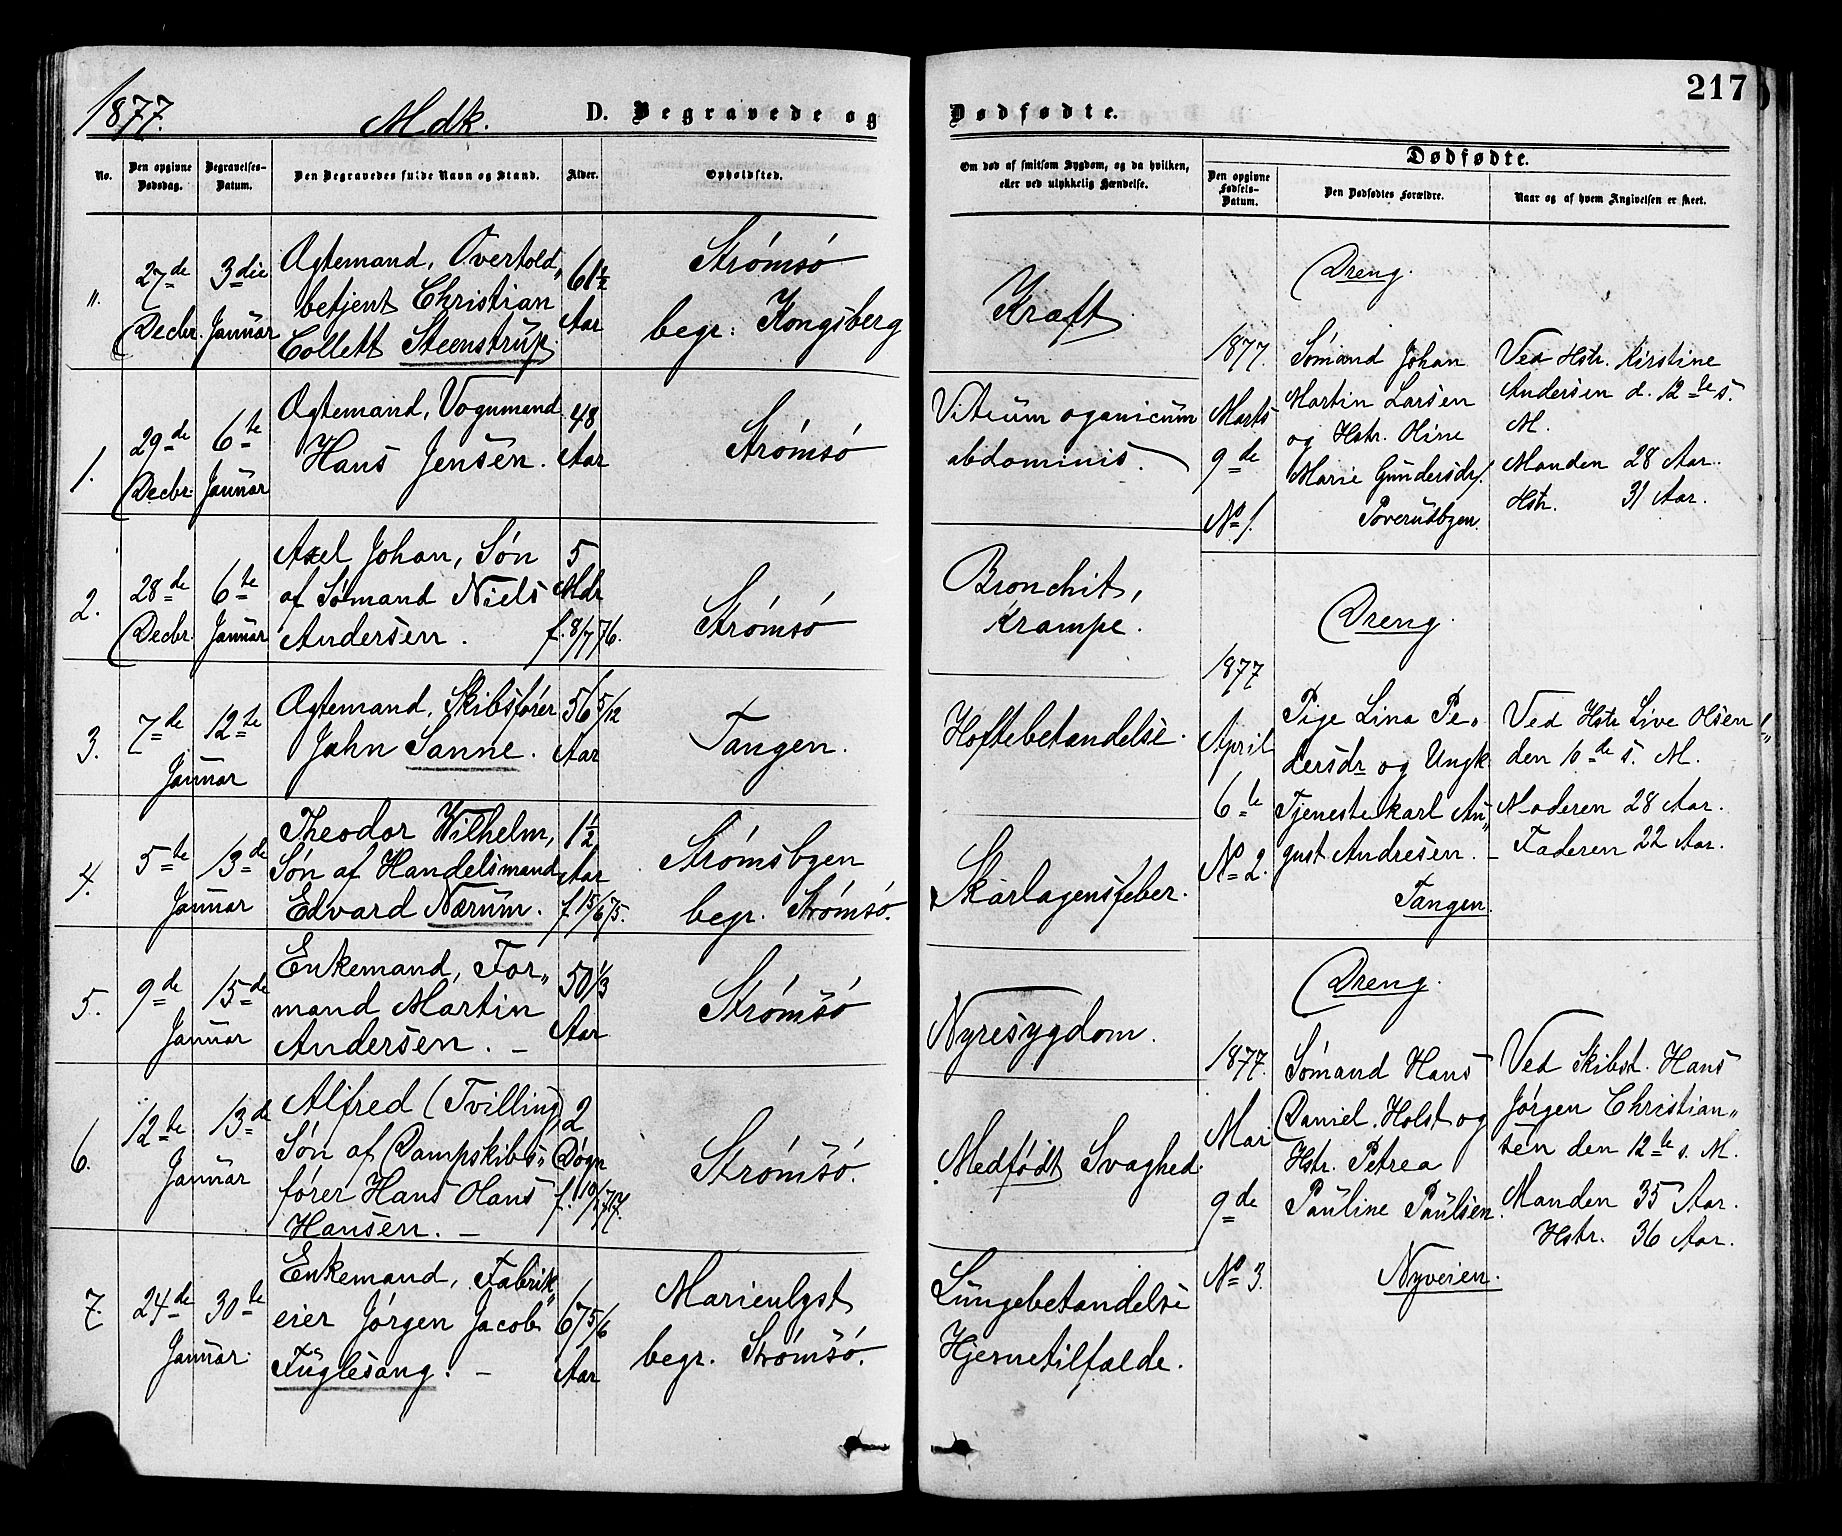 217
1877.
Mdk.
D. Begravede og
Dødfødte.
No.
Den opgivne
Dødsdag.
Begravelses-
Datum.
Den Begravedes fulde Navn og Stand.
Alder.
Opholdsted.
Om død af smitsom Sygdom, og da hvilken,
eller ved ulykkelig Hændelse.
Dødfødte.
Den opgivne
Fødsels-
Datum.
Den Dødfødtes Forældre.
Naar og af hvem Angivelsen er skeet.
"
27de
Decbr.
3die
Januar
Ægtemand, Overtold"
betjent Christian
Collett Steenstrup.
61½
Aar
Strømsø
begr: Kongsberg
Kræft
1.
29de
Decbr.
6te
Januar
Ægtemand, Vognmand
Hans Jensen.
48
Aar
Strømsø
Vitium oganicum
abdominis.
2.
28de
Decbr.
6te
Januar
Axel Johan, Søn
af Sømand Niels
Andersen.
5
Mdr
f. 8/7 76.
Strømsø
Bronchit,
Krampe.
3.
7de
12te
Januar
Ægtemand, Skibsfører
Jahn Sanne.
56 5/12
Aar
Tangen.
Hoftebetændelse.
4.
5te
13de
Januar
Theodor Wilhelm,
Søn af Handelsmand
Edvard Nærum.
1½
Aar
f 15/6 75.
Strømsbyen
begr. Strømsø.
Skarlagensfeber.
5.
9de
15de
Januar
Enkemand, For"
mand Martin
Andersen. –
50 1/3
Aar
Strømsø
Nyresygdom.
6.
12te
13de
Januar
Alfred (Tvilling)
Søn af Dampskibs"
fører Hans Olaus
Hansen. –
2
Døgn
f. 10/1 77.
Strømsø.
Medfødt Svaghed.
7.
24de
30te
Januar
Enkemand, Fabrik"
eier Jørgen Jacob
Fuglesang. –
67 5/6
Aar
Marienlyst
begr. Strømsø.
Lungebetændelse
Hjernetilfælde.
Dreng.
1877.
Marts
9de
No 1.
Sømand Johan
Martin Larsen
og Hstr. Oline
Marie Gundersdr.
Toverudbyen.
Ved Hstr. Kirstine
Andersen d. 12te s.
M.
Manden 28 Aar.
Hstr. 31 Aar.
Dreng.
1877
April
6te
No 2.
Pige Lina Pe"
dersdr og Ungk
Tjenestekarl Au"
gust Andresen. –
Tangen.
Ved Hstr Live Olsen
den 10de s. M.
Moderen 28 Aar.
Faderen 22 Aar.
Dreng.
1877.
Mai
9de
No 3.
Sømand Hans
Daniel Holst og
Hstr. Petrea
Pauline Paulsen.
Nyveien.
Ved Skibst. Hans
Jørgen Christian"
sen den 12te s. M.
Manden 35 Aar.
Hstr. 36 Aar.